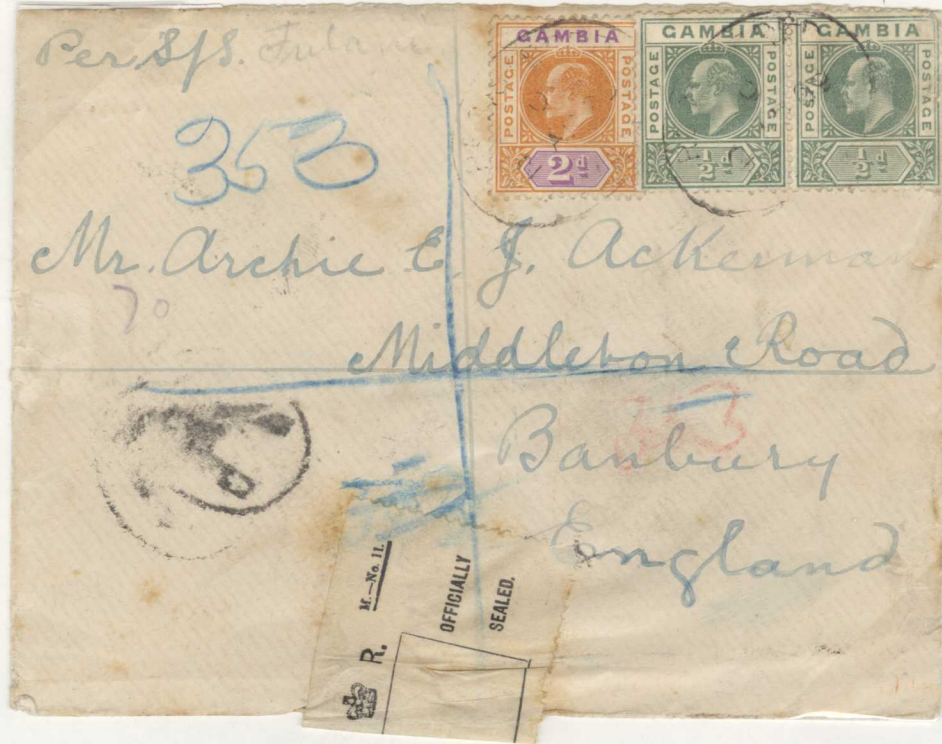 Per S/S. Fulani
GAMBIA
POSTAGE
POSTAGE
2d
GAMBIA
POSTAGE
POSTAGE
½d
GAMBIA
POSTAGE
POSTAGE
½d
353
Mr. Archie E. J. Ackerman
70
Middleton Road
353
Banbury
England
M.—No. 11.
R.
OFFICIALLY
SEALED.